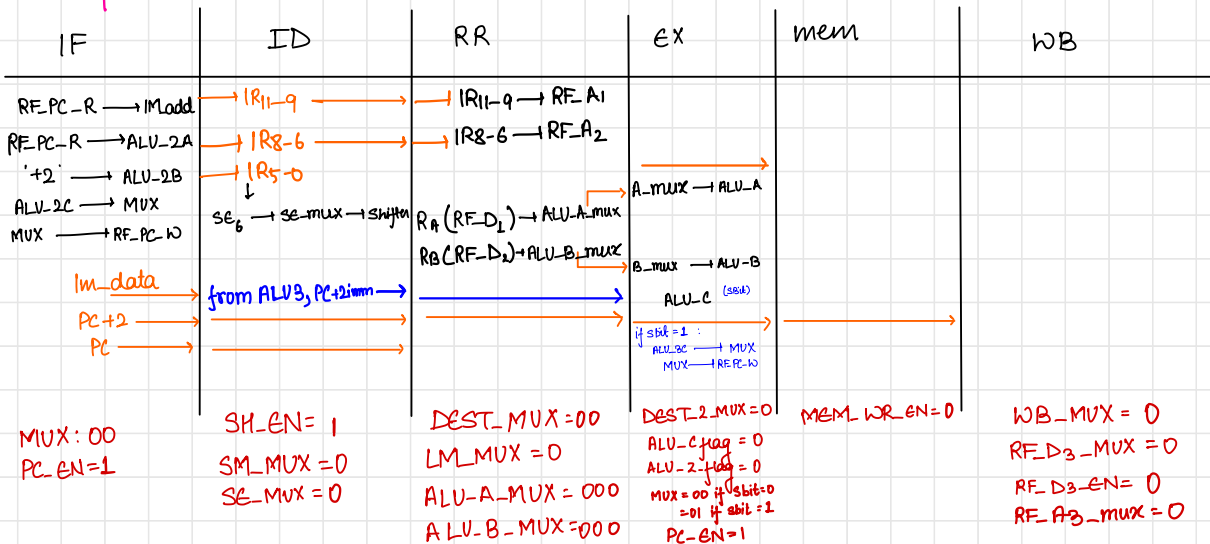 IF
RF_PC_R → IMadd
RF_PC_R → ALU_2A
'+2' → ALU_2B
ALU_2C → MUX
MUX → RF_PC_W
Im_data
PC+2
PC
MUX: 00
PC_EN=1
ID
IR11-9
IR8-6
IR5-0
SE6 → SE_mux → Shifter
from ALU3, PC+2imm
SH_EN= 1
SM_MUX =0
SE_MUX =0
RR
IR11-9 → RF_A1
IR8-6 → RF_A2
RA (RF_D1) → ALU_A_mux
RB (RF_D2) → ALU_B_mux
DEST_MUX =00
LM_MUX =0
ALU_A_MUX = 000
ALU_B_MUX =000
EX
A_mux → ALU_A
B_mux → ALU-B
ALU_C (sbit)
if sbit =1 :
ALU_3C → MUX
MUX → RF_PC_W
DEST_2_MUX=0
ALU_C flag = 0
ALU_2-flag = 0
MUX = 00 if sbit=0
=01 if sbit =1
PC_EN=1
mem
MEM_WR_EN=0
WB
WB_MUX = 0
RF_D3_MUX =0
RF_D3_EN= 0
RF_A3_mux =0